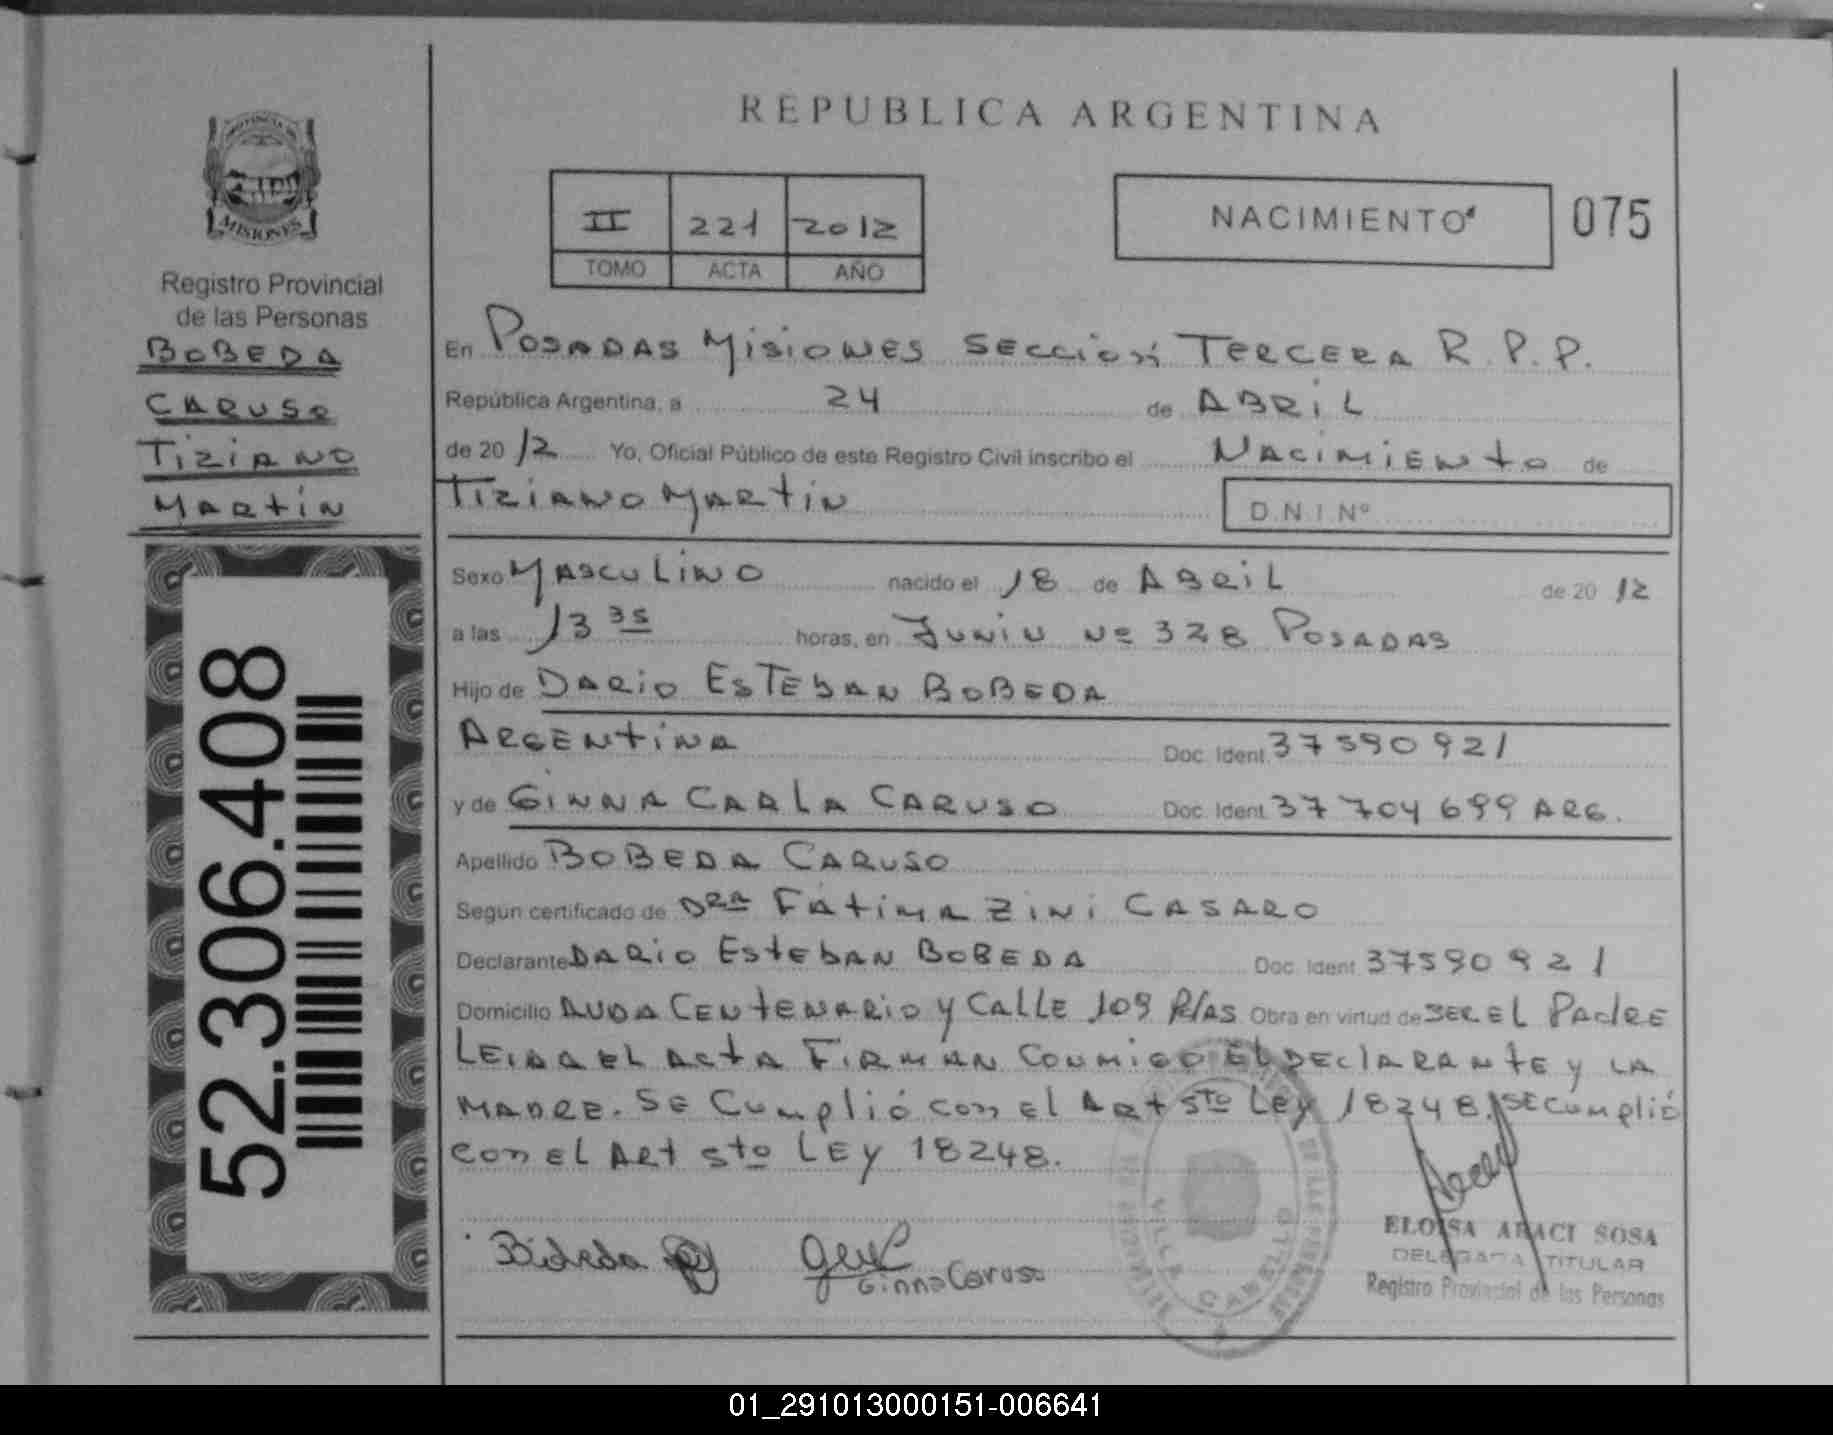 REPUBLICA ARGENTINA
II 221 2012
TOMO ACTA AÑO
NACIMIENTO
075
PROVINCIA DE
MISIONES
Registro Provincial
de las Personas
BOBEDA
CARUSO
TIZIANO
MARTIN
52.306.408
En POSADAS MISIONES SECCION TERCERA R.P.P.
República Argentina, a 24 de ABRIL
de 2012 Yo, Oficial Público de este Registro Civil inscribo el NACIMIENTO de
TIZIANO MARTIN D.N.I Nº
Sexo MASCULINO nacido el 18 de ABRIL de 2012
a las 13 35 horas, en JUNIN Nº 328 POSADAS
Hijo de DARIO ESTEBAN BOBEDA
ARGENTINA Doc. Ident. 37590921
y de GINNA CARLA CARUSO Doc. Ident. 37704699 ARG.
Apellido BOBEDA CARUSO
Segun certificado de DRA FATIMA ZINI CASARO
Declarante DARIO ESTEBAN BOBEDA Doc. Ident. 37590921
Domicilio AVDA CENTENARIO Y CALLE 109 P/AS Obra en virtud de SER EL PADRE
LEIDA EL ACTA FIRMAN CONMIGO EL DECLARANTE y LA
MADRE. SE Cumplió con el ART 5to Ley 18248. SE cumplió
con EL ART 5to LEY 18248.
Ginna Caruso
VILLA CABELLO
ELOISA ARACI SOSA
DELEGADA TITULAR
Registro Provincial de las Personas
01_291013000151-006641